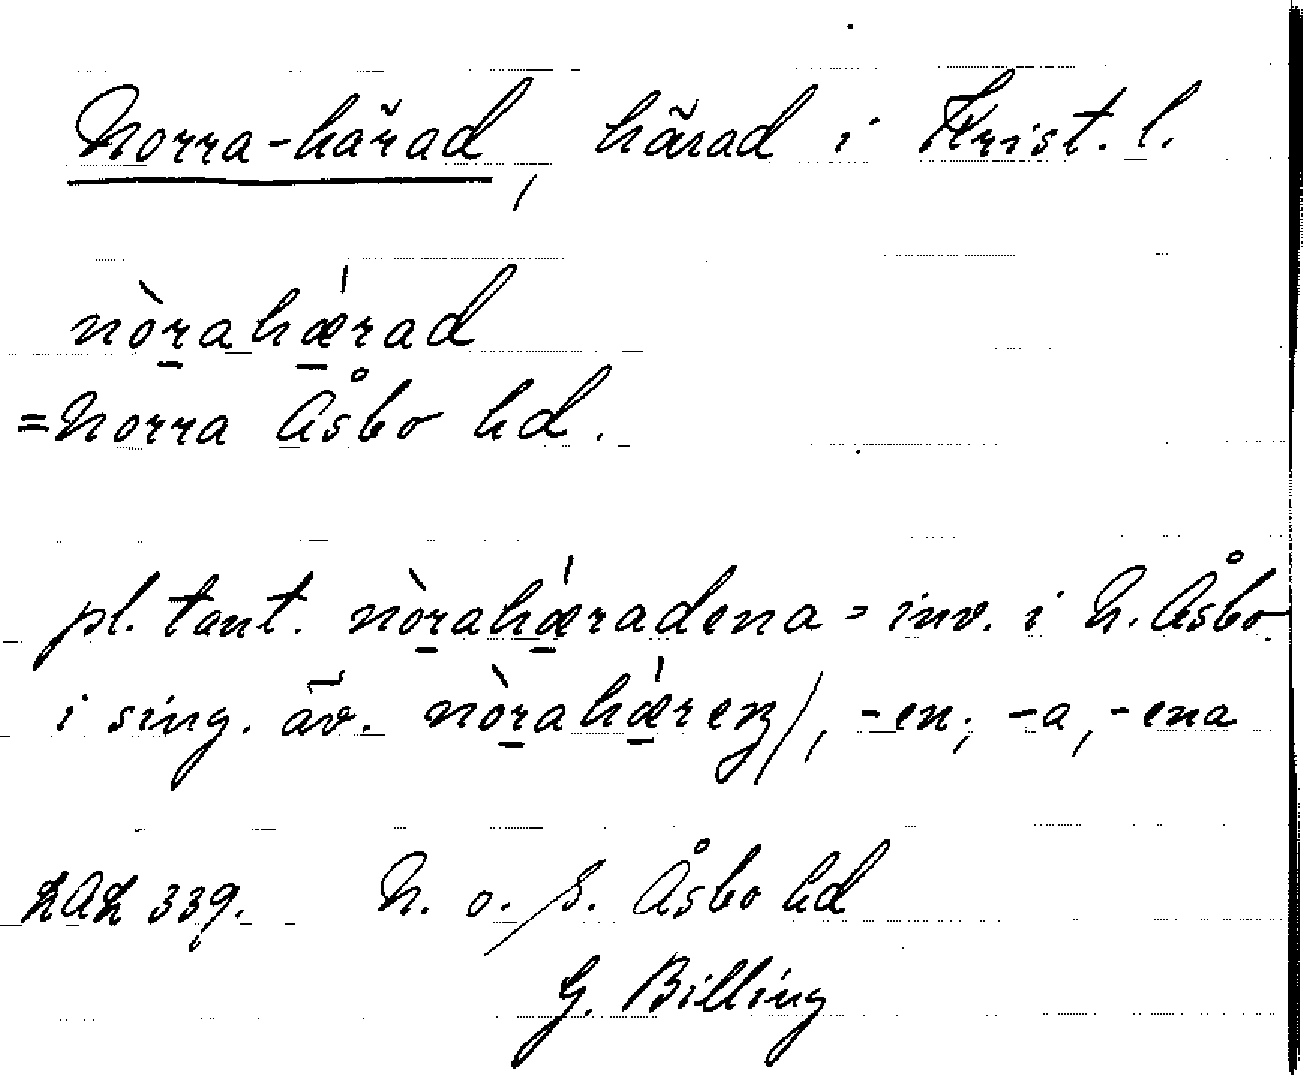 Norra-härad, härad i Krist. l.
nòṟahǽ̱rad
=Norra Åsbo hd.
pl. tant. nòṟahǽ̱radena = inv. i N. Åsbo
i sing. äv. nòṟahǽ̱reȥ/, -en; -a, -ena
LAL 339. N. o. S. Åsbo hd
G. Billing